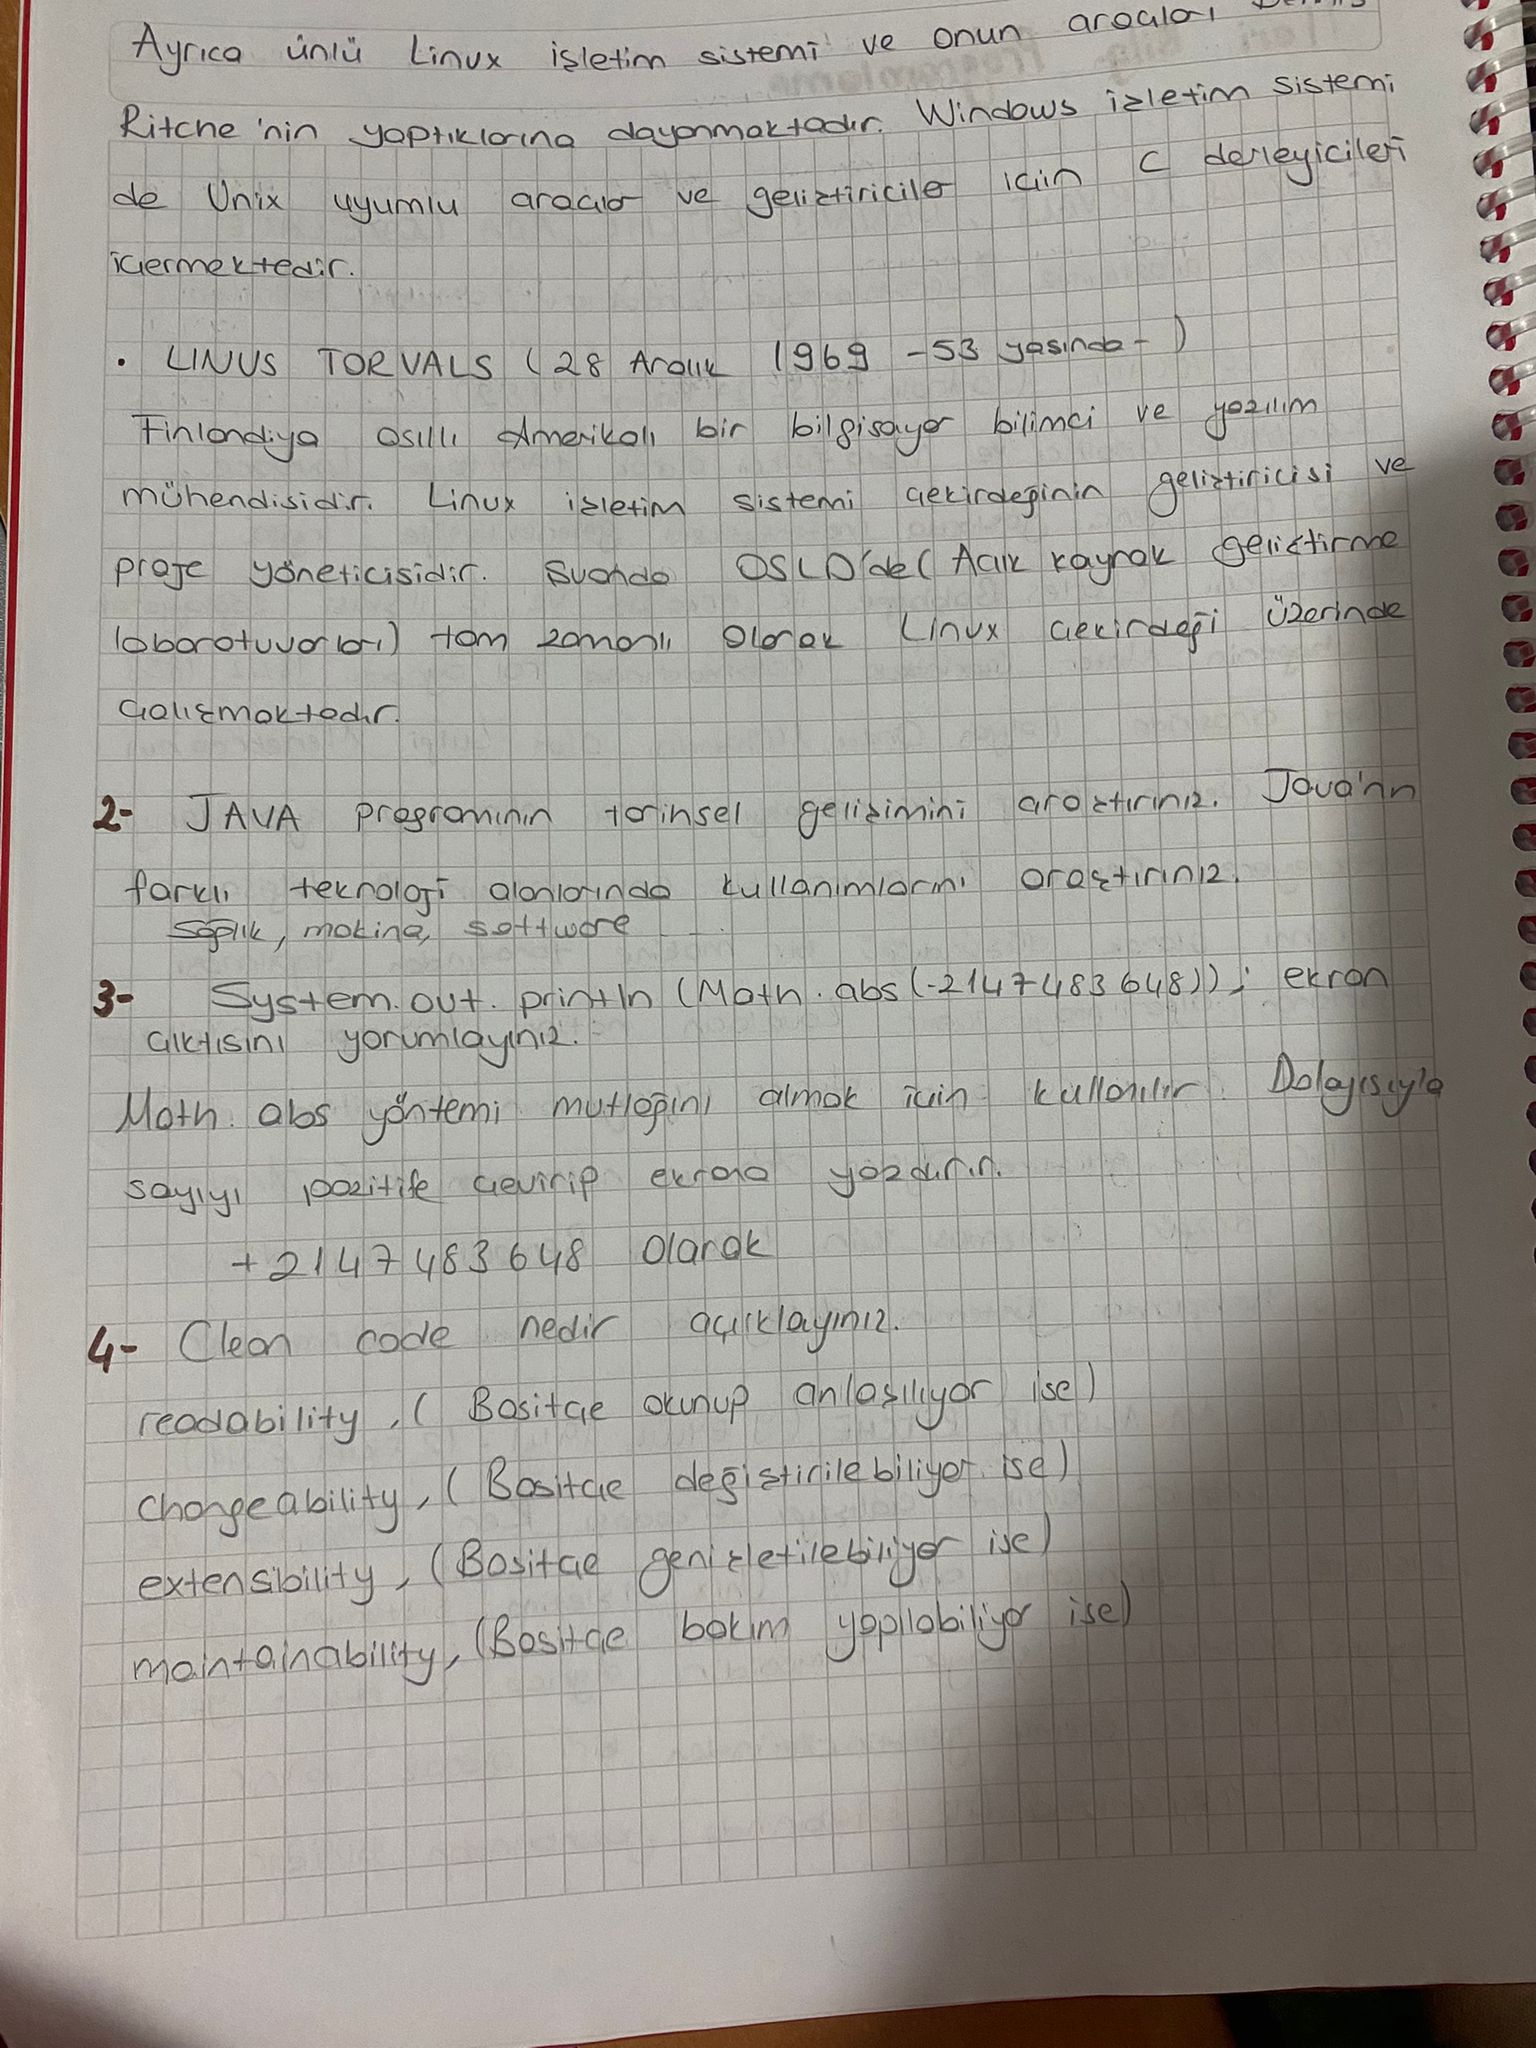 Ayrıca ünlü Linux işletim sistemi ve onun araçları
Ritche'nin yaptıklarına dayanmaktadır. Windows işletim sistemi
de Unix uyumlu araçlar ve geliştiriciler için C derleyicileri
içermektedir.
• LINUS TORVALS (28 Aralık 1969 -53 yaşında- )
Finlandiya asıllı Amerikalı bir bilgisayar bilimci ve yazılım
mühendisidir. Linux işletim sistemi çekirdeğinin geliştiricisi ve
proje yöneticisidir. Şuanda OSLD'de (Açık kaynak geliştirme
laboratuvarları) tam zamanlı olarak Linux çekirdeği üzerinde
çalışmaktadır.
2- JAVA programının tarihsel gelişimini araştırınız. Java'nın
farklı teknoloji alanlarında kullanımlarını araştırınız.
Sağlık, makina, software
3- System.out.println (Math.abs(-2147483648)); ekran
çıktısını yorumlayınız.
Math.abs yöntemi mutlağını almak için kullanılır. Dolayısıyla
sayıyı pozitife çevirip ekrana yazdırır.
+2147483648 olarak
4- Clean code nedir açıklayınız.
readability, (Basitçe okunup anlaşılıyor ise)
changeability, (Basitçe değiştirilebiliyor ise)
extensibility, (Basitçe genişletilebiliyor ise)
maintainability, (Basitçe bakım yapılabiliyor ise)